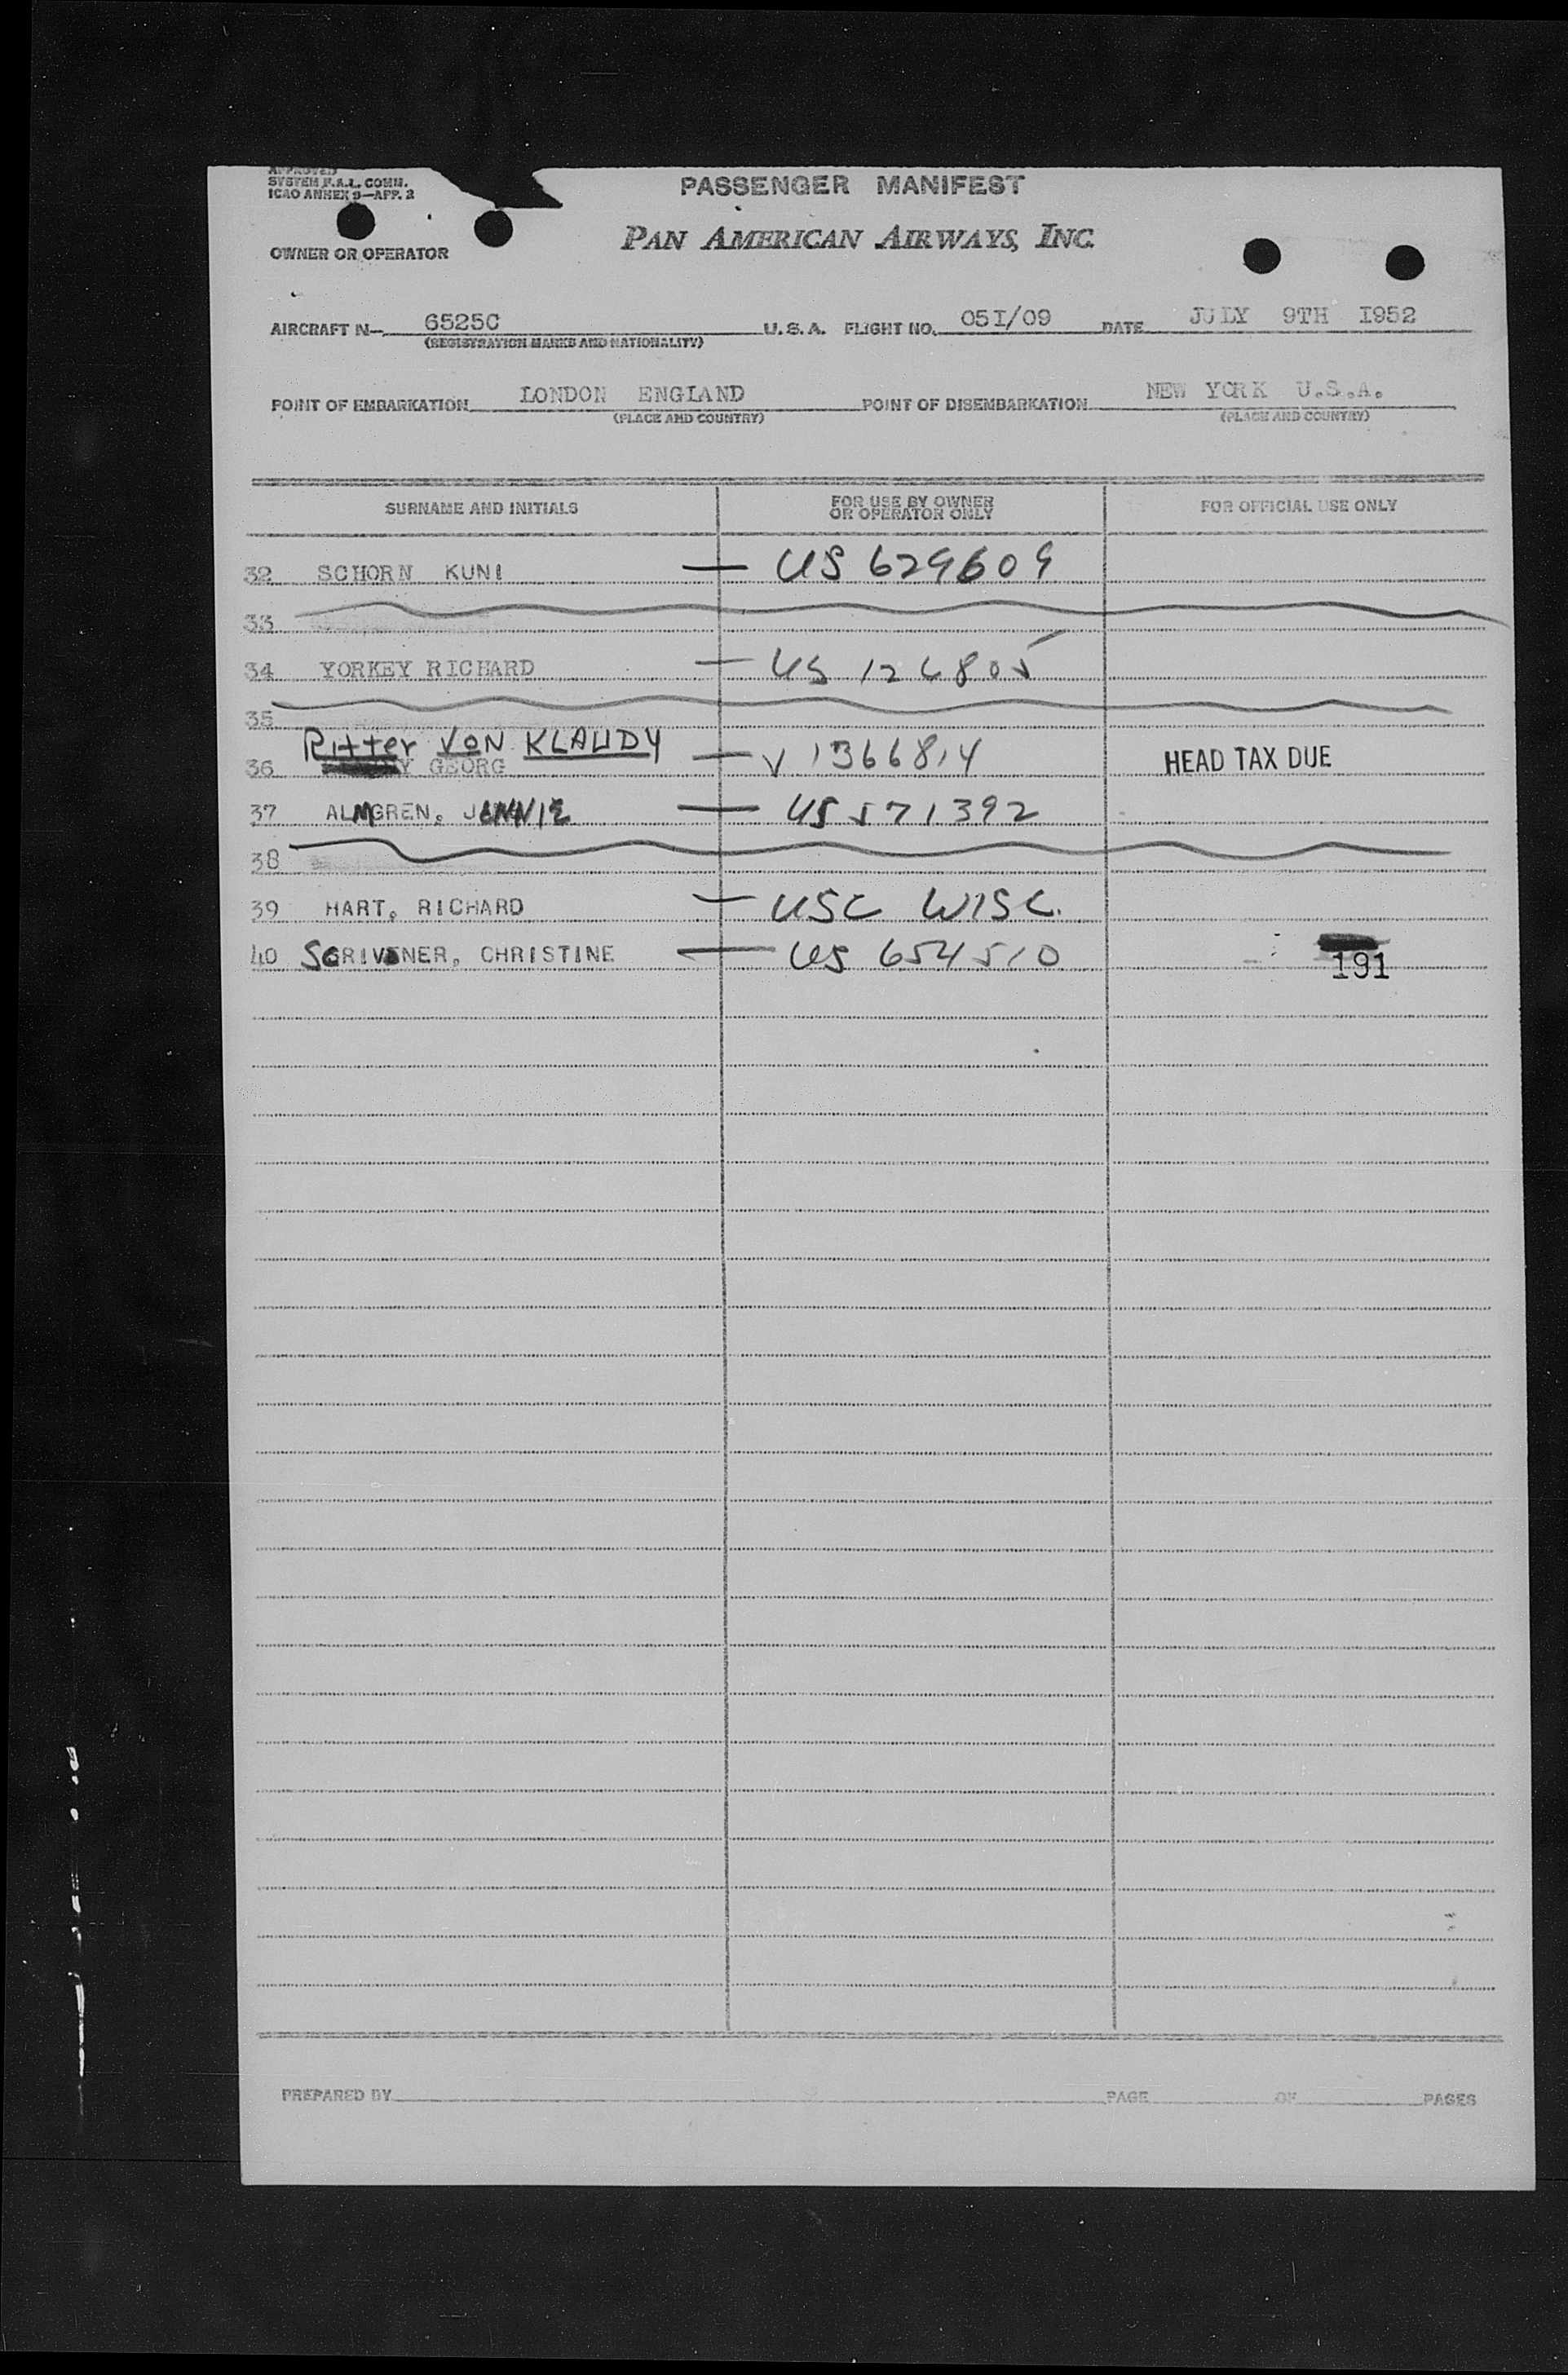 APPROVED
SYSTEM F.A.L. COMM.
ICAO ANNEX 9—APP. 2
PASSENGER MANIFEST
PAN AMERICAN AIRWAYS, INC.
OWNER OR OPERATOR
AIRCRAFT N— 6525C U.S.A. FLIGHT NO. 05I/09 DATE JULY 9TH I952
(REGISTRATION MARKS AND NATIONALITY)
POINT OF EMBARKATION LONDON ENGLAND POINT OF DISEMBARKATION NEW YORK U.S.A.
(PLACE AND COUNTRY) (PLACE AND COUNTRY)
SURNAME AND INITIALS FOR USE BY OWNER OR OPERATOR ONLY FOR OFFICIAL USE ONLY
32 SCHORN KUNI — US 629609
33
34 YORKEY RICHARD — US 126805
35
Ritter VON KLAUDY
36 GEORG — V 1366814 HEAD TAX DUE
37 ALMGREN, JENNIE — US 571392
38
39 HART, RICHARD — USC WISC.
40 SCRIVENER, CHRISTINE — US 654510
191
PREPARED BY PAGE OF PAGES